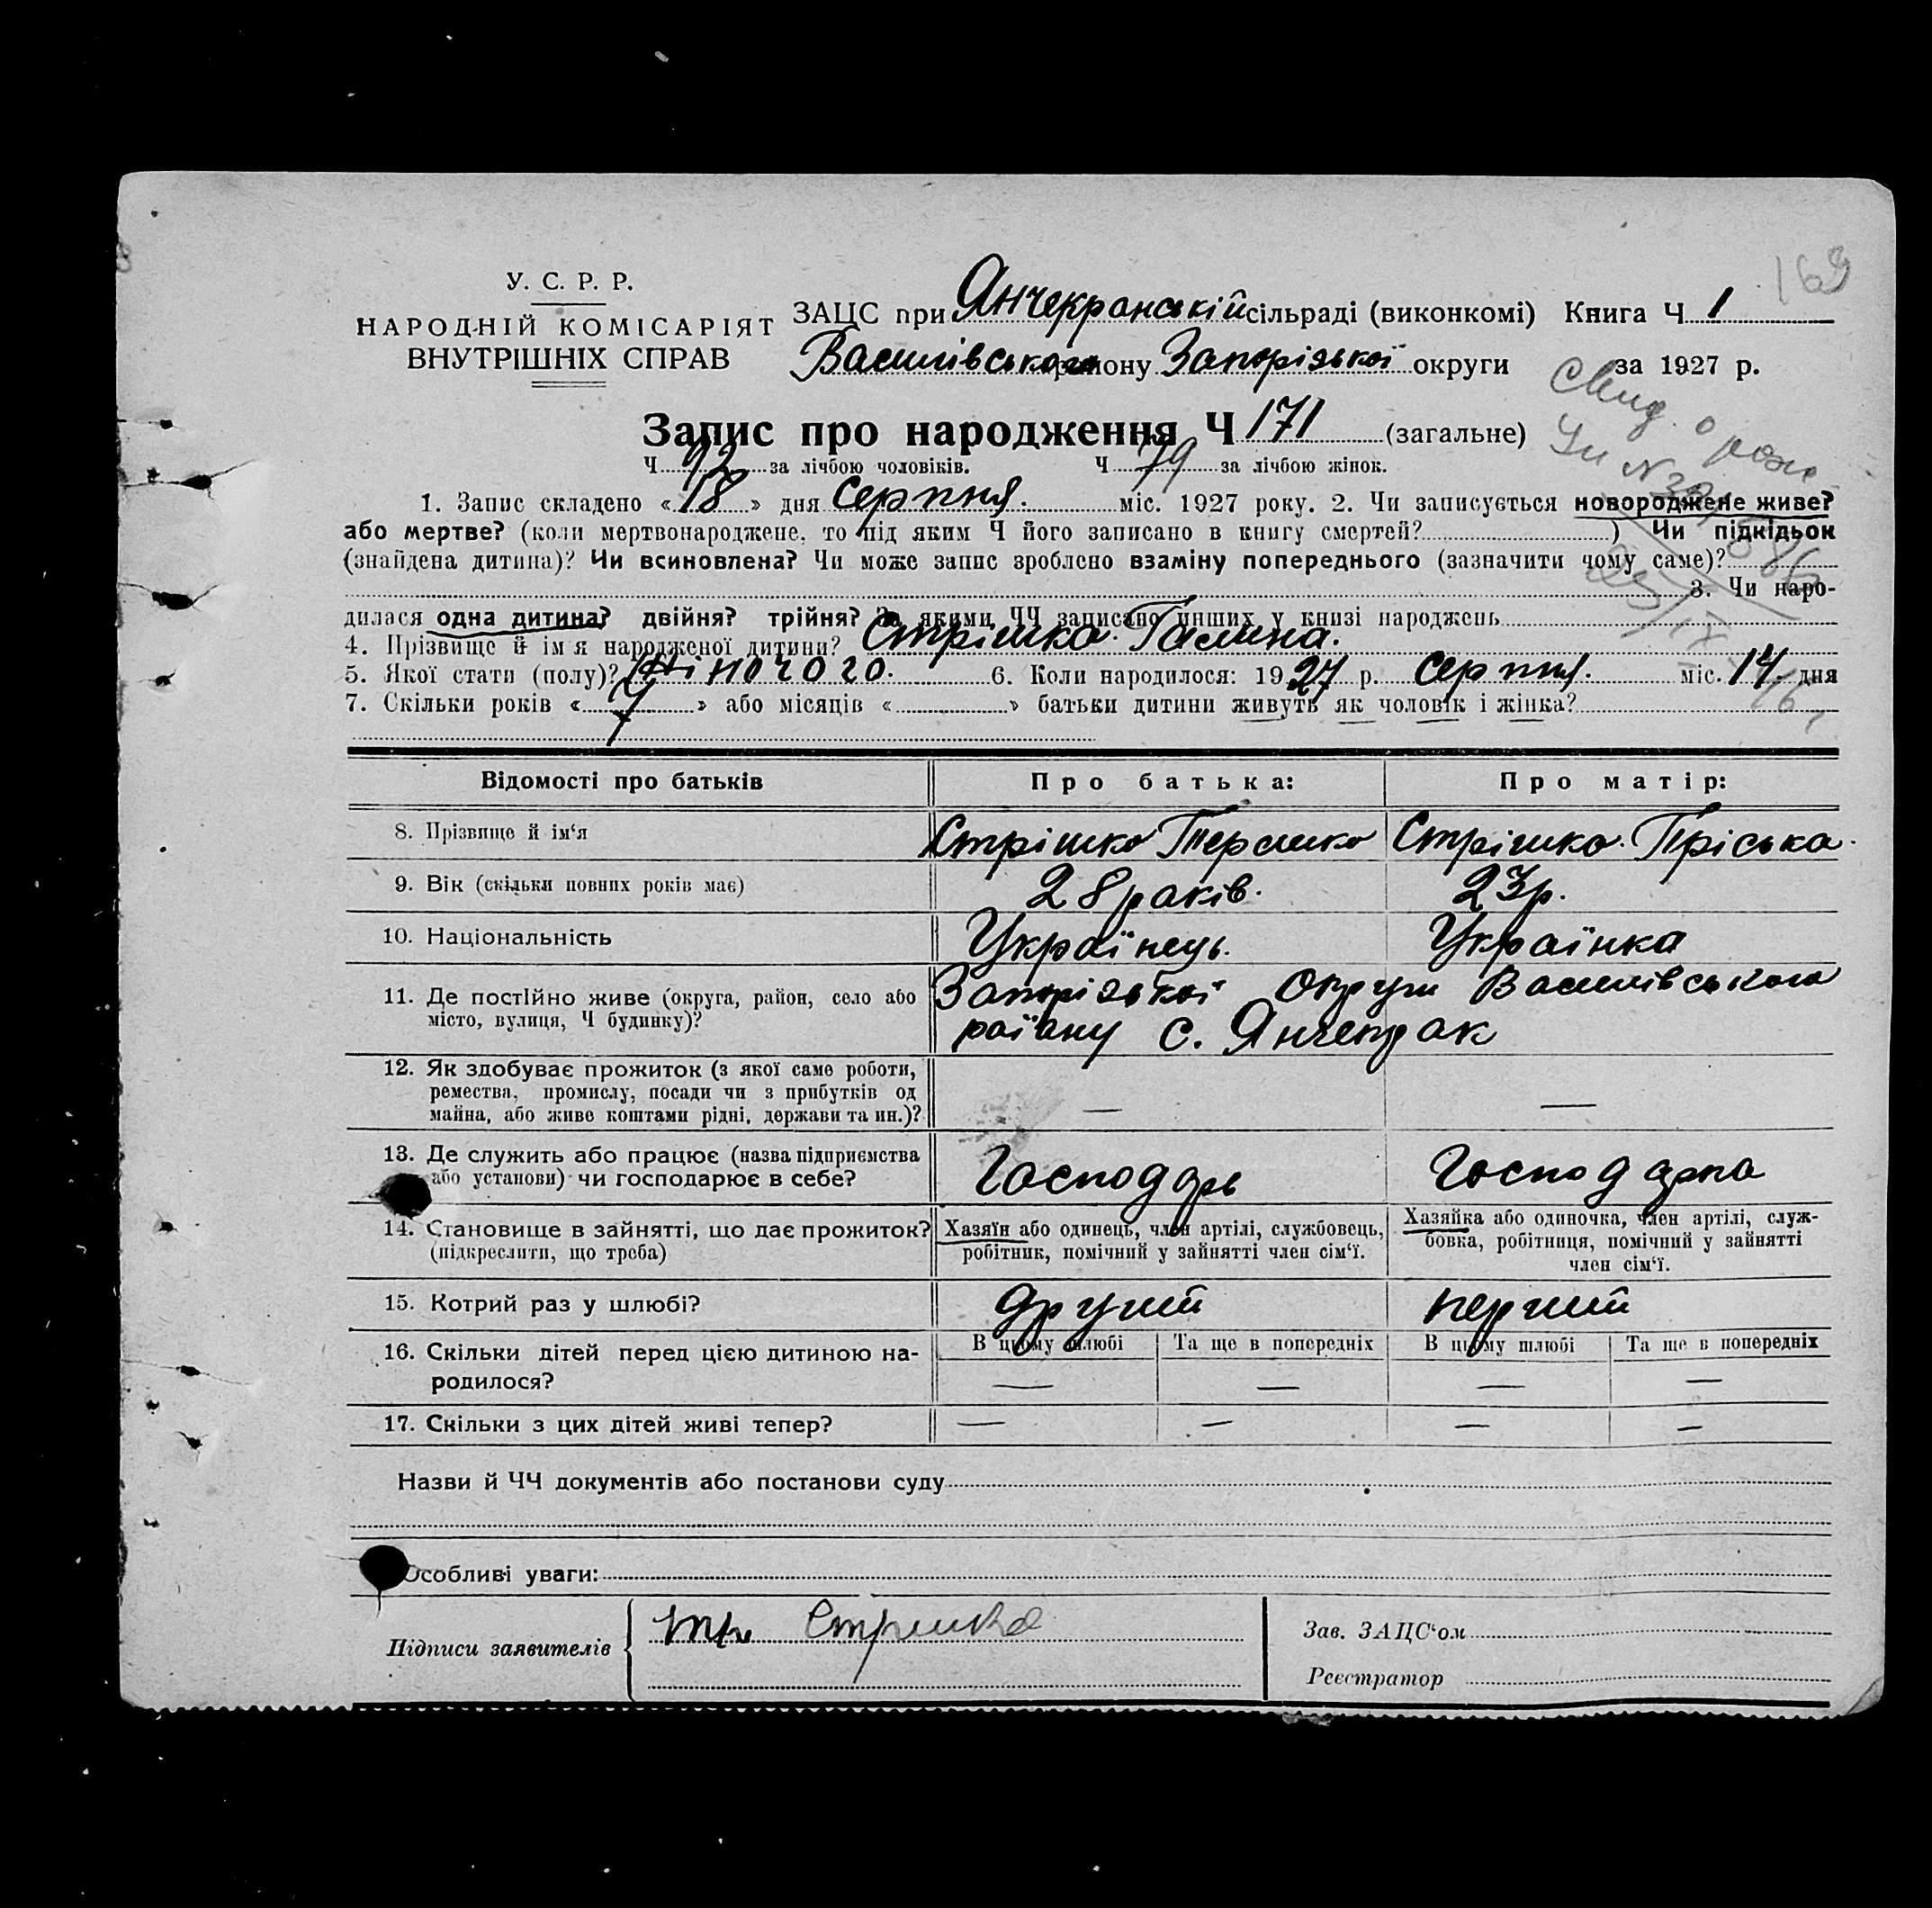 169
У. С. Р. Р.
НАРОДНІЙ КОМІСАРІЯТ
ВНУТРІШНІХ СПРАВ
ЗАЦС при Янчекранській сільраді (виконкомі) Книга Ч 1
Василівського району Запорізької округи за 1927 р.
Запис про народження Ч 171 (загальне)
Ч 92 за лічбою чоловіків. Ч 79 за лічбою жінок.
Свид. о рож
1. Запис складено « 18 » дня серпня. міс. 1927 року. 2. Чи записується новороджене живе?
або мертве? (коли мертвонароджене, то під яким Ч його записано в книгу смертей? ) Чи підкідьок
(знайдена дитина)? Чи всиновлена? Чи може запис зроблено взаміну попереднього (зазначити чому саме)?
3. Чи наро-
дилася одна дитина? двійня? трійня? За якими ЧЧ записано инших у книзі народжень
4. Прізвище й ім'я народженої дитини? Стрішко Галина.
5. Якої стати (полу)? Жіночого. 6. Коли народилося: 1927 р. серпня. міс. 14 дня
7. Скільки років « » або місяців « » батьки дитини живуть як чоловік і жінка?
Відомості про батьків Про батька: Про матір:
8. Прізвище й ім'я Стрішко Терешко Стрішко. Пріська.
9. Вік (скільки повних років має) 28 раків. 23р.
10. Національність Українець. Українка
11. Де постійно живе (округа, район, село або Запорізької Округи Василівського
місто, вулиця, Ч будинку)? раіану с. Янчекрак
12. Як здобуває прожиток (з якої саме роботи,
ремества, промислу, посади чи з прибутків од
майна, або живе коштами рідні, держави та ин.)? — —
13. Де служить або працює (назва підприємства
або установи) чи господарює в себе? Господарь Господарка
14. Становище в зайнятті, що дає прожиток? Хазяїн або одинець, член артілі, службовець, Хазяйка або одиночка, член артілі, служ-
(підкреслити, що треба) робітник, помічний у зайнятті член сім'ї. бовка, робітниця, помічний у зайнятті
член сім'ї.
15. Котрий раз у шлюбі? другий перший
16. Скільки дітей перед цією дитиною на- В цьому шлюбі Та ще в попередніх В цьому шлюбі Та ще в попередніх
родилося? — — — —
17. Скільки з цих дітей живі тепер? — — — —
Назви й ЧЧ документів або постанови суду
Особливі уваги:
Підписи заявителів Стришко
Зав. ЗАЦС'ом
Реєстратор